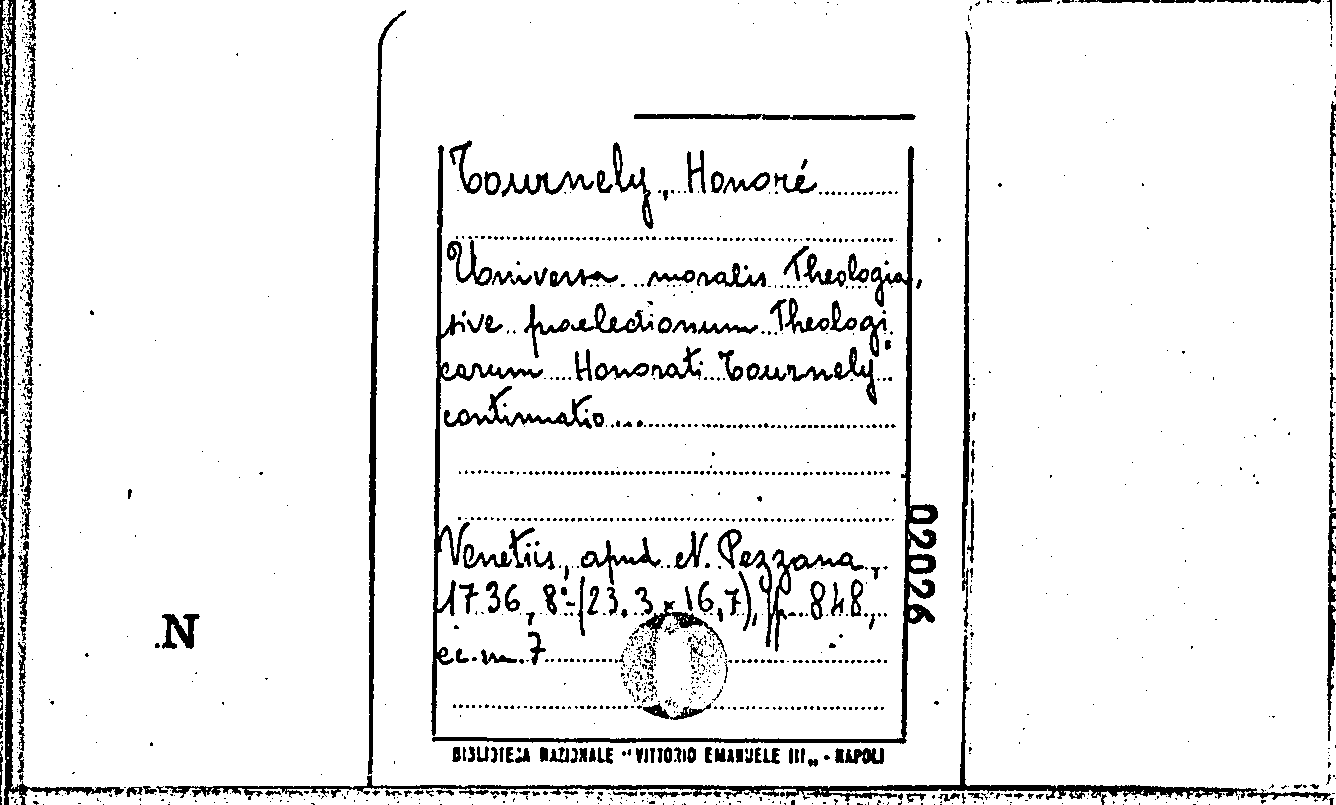 Tournely, Honoré
Universa moralis Theologia,
sive praelectionum Theologi
carum Honorati Tournely
continuatio...
Venetiis, apud N. Pezzana,
1736, 8°-(23,3 x 16,7), pp. 848,
ei. m. 7
02026
.N
BIBLIOTECA NAZIONALE "VITTORIO EMANUELE III„ - NAPOLI